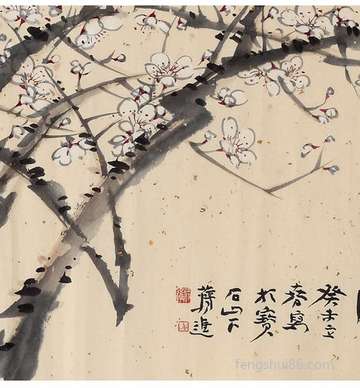 癸未立
春寫
於寶
石山下
蔣進
fengshui86.com